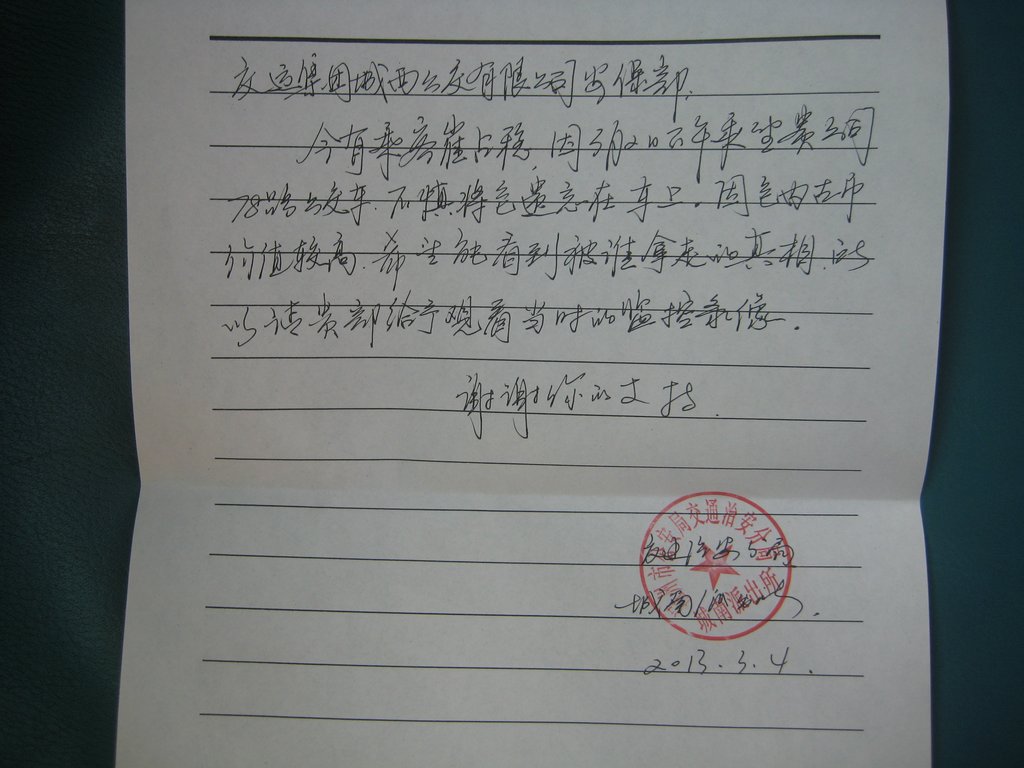 交运集团城西公交有限公司安保部.
今有乘客崔占稳,因3月2日下午乘坐贵公司
78路公交车.不慎将包遗忘在车上。因包内古币
价值较高.希望能看到被谁拿走的真相.所
以请贵部给予观看当时的监控录像.
谢谢你的支持.
市 安局交通治安分局
交通治安分局
城南派出所.
城南派出所
2013.3.4.